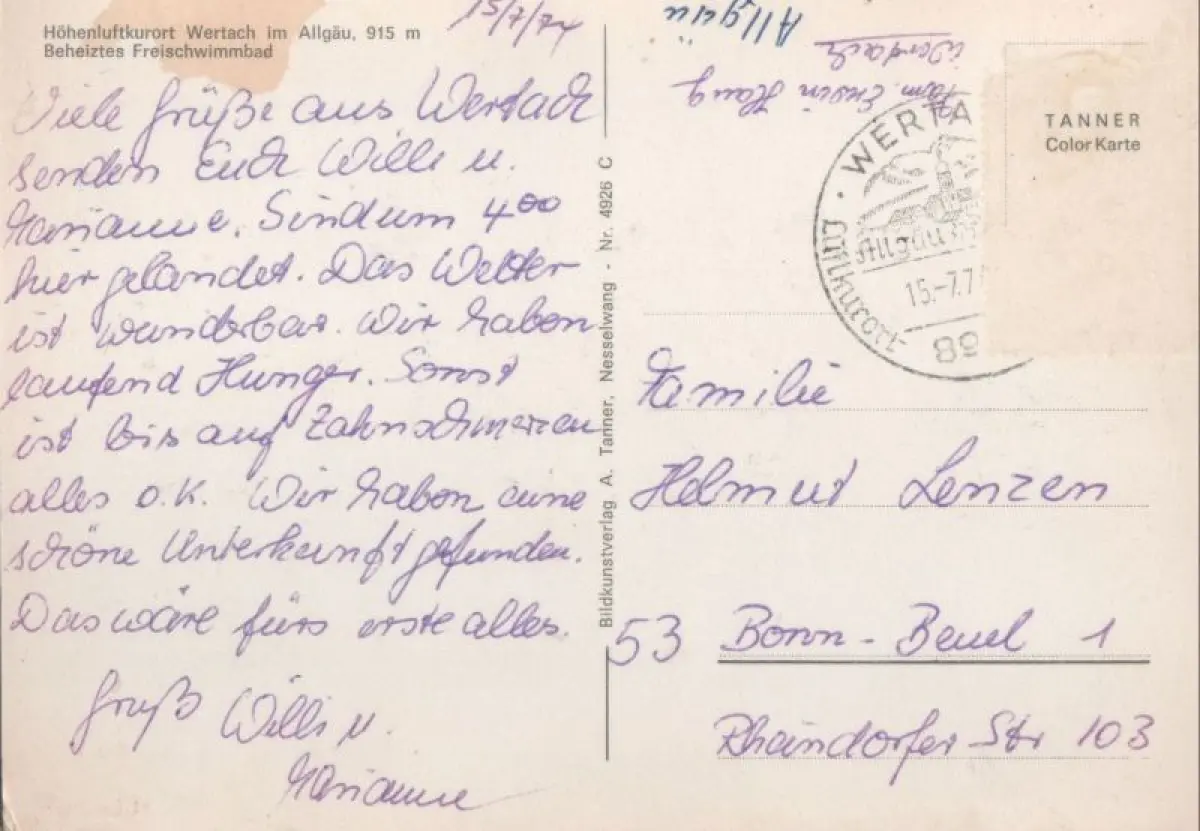 Höhenluftkurort Wertach im Allgäu, 915 m
Beheiztes Freischwimmbad
15/7/74
Viele Grüße aus Wertach
senden Euch Willi u.
Marianne. Sind um 4⁰⁰
hier gelandet. Das Wetter
ist wunderbar. Wir haben
laufend Hunger. Sonst
ist bis auf Zahnschmerzen
alles o.K. Wir haben eine
schöne Unterkunft gefunden.
Das wäre fürs erste alles.
Gruß Willi u.
Marianne
Bildkunstverlag A. Tanner, Nesselwang - Nr. 4926 C
Fam. Erwin Haug
Wertach
Allgäu
WERTA
Allgäu
15.-7.7
Luftkurort
TANNER
Color Karte
Familie
Helmut Lenzen
53 Bonn-Beuel 1
Rheindorfer Str 103